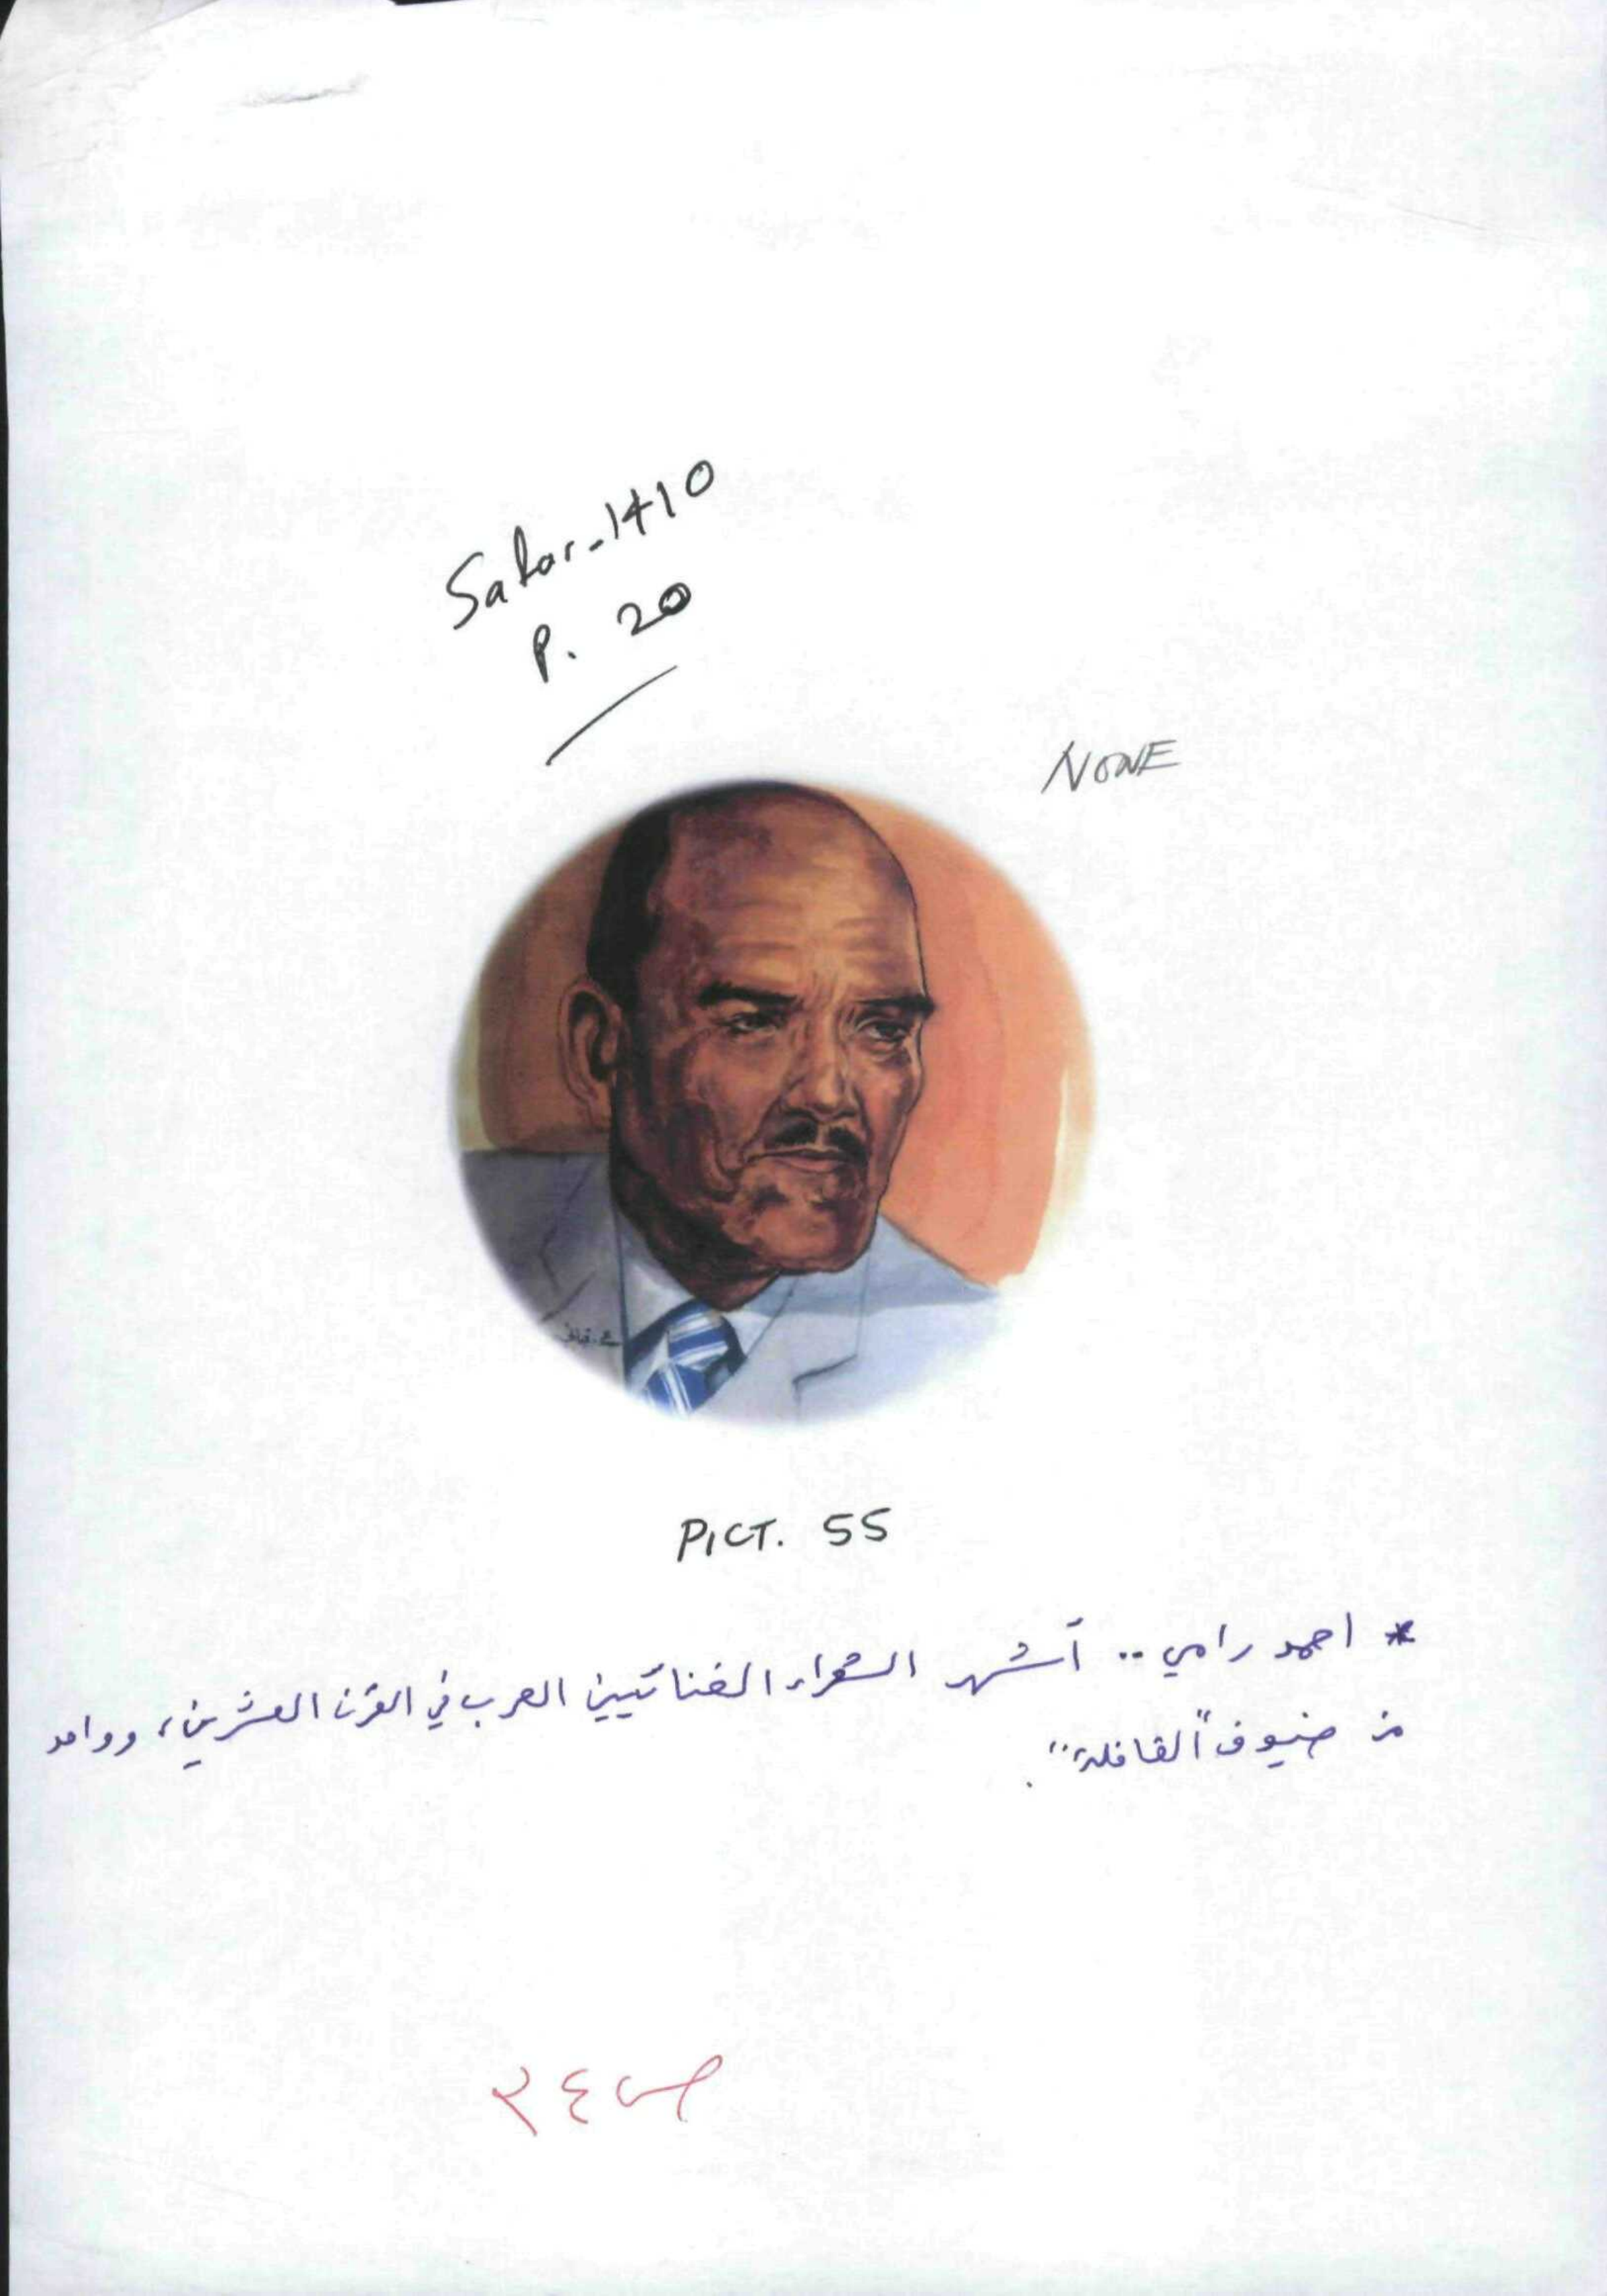 Safar-1410
P. 20
NONE
PICT. 55
* احمد رامي .. أشهر الشعراء الغنائيين العرب في القرن العشرين، وواحد
من ضيوف "القافلة".